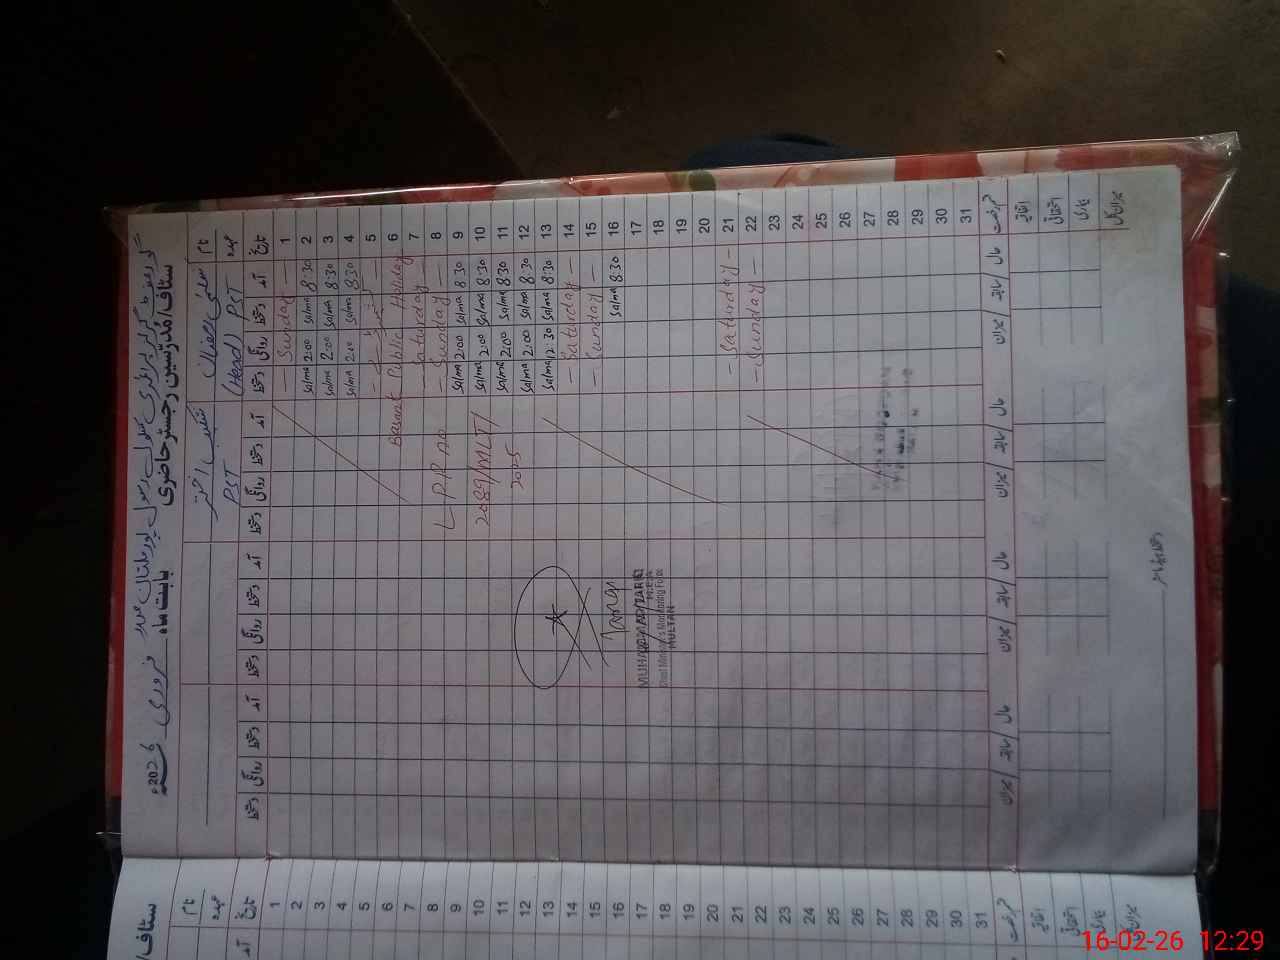 گورنمنٹ گرلز پرائمری سکول رسول پور ملتان
سٹاف/مُدرّسین رجسٹر حاضری بابت ماہ فروری 2026ء
نام سلمیٰ رمضان
عہدہ (Head) PST PST
تاریخ آمد دستخط روانگی دستخط آمد دستخط روانگی دستخط آمد دستخط روانگی دستخط آمد دستخط روانگی دستخط
1 — Sunday —
2 8:30 Salma 2:00 Salma
3 8:30 Salma 2:00 Salma
4 8:30 Salma 2:00 Salma
5
6 Basant Public Holiday
7 — Saturday —
8 — Sunday — LPR no
9 8:30 Salma 2:00 Salma
10 8:30 Salma 2:00 Salma 2089/MLT/
11 8:30 Salma 2:00 Salma 2025
12 8:30 Salma 2:00 Salma
13 8:30 Salma 12:30 Salma
14 — Saturday —
15 — Sunday —
16 8:30 Salma
17
18
19
20
21 — Saturday —
22 — Sunday —
23
24
25
26
27
28
29
30
31
MUHAMMAD TARIQ
M.E.A
Chief Minister's Monitoring Force
MULTAN
قسم رخصت حال / سابقہ / میزان حال / سابقہ / میزان حال / سابقہ / میزان حال / سابقہ / میزان
اتفاقیہ
استحقاقی
بیماری
میزان کل
سٹاف/
نام
عہدہ
تاریخ آمد
1
2
3
4
5
6
7
8
9
10
11
12
13
14
15
16
17
18
19
20
21
22
23
24
25
26
27
28
29
30
31
قسم رخصت
اتفاقیہ
استحقاقی
بیماری
میزان کل
16-02-26 12:29